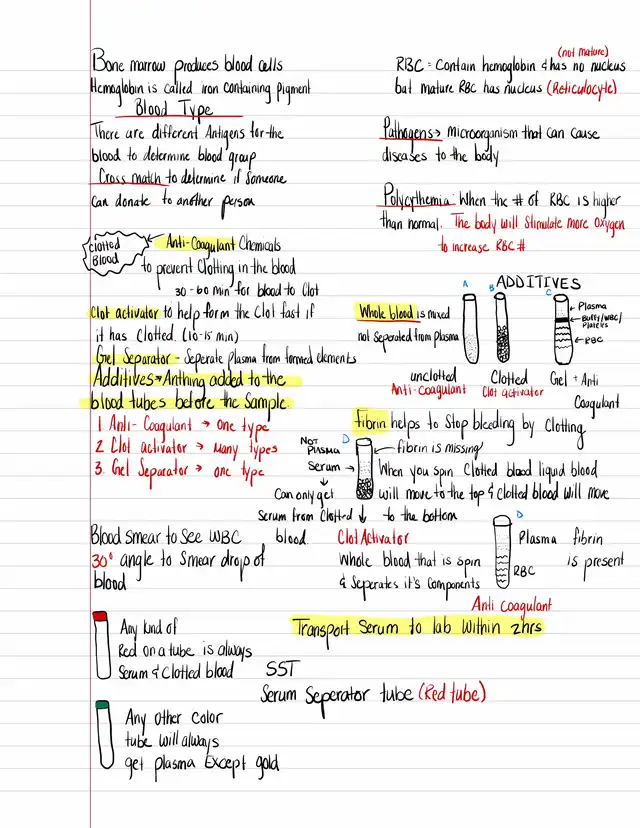 Bone marrow produces blood cells
Hemoglobin is called iron containing pigment
Blood Type
There are different Antigens for the
blood to determine blood group
Cross match to determine if someone
can donate to another person
(not mature)
RBC = Contain hemoglobin & has no nucleus
but mature RBC has nucleus (Reticulocyte)
Pathogens → microorganism that can cause
diseases to the body
Polycythemia: When the # of RBC is higher
than normal. The body will stimulate more oxygen
to increase RBC #
Clotted
Blood
Anti-Coagulant Chemicals
to prevent Clotting in the blood
30-60 min for blood to Clot
Clot activator to help form the Clot fast if
it has Clotted. (10-15 min)
Gel Separator - Seperate plasma from formed elements
Additives → Anthing added to the
blood tubes before the Sample.
1 Anti-Coagulant → one type
2 Clot activator → many types
3. Gel Separator → one type
ADDITIVES
Whole blood is mixed
not separated from plasma
A
B
C
Plasma
Buffy/WBC/
Platelets
RBC
unclotted
Anti-coagulant
Clotted
Clot activator
Gel + Anti
Coagulant
Fibrin helps to Stop bleeding by Clotting
NOT
PLASMA
Serum →
Can only get
Serum from Clotted
blood.
D
fibrin is missing
When you spin Clotted blood liquid blood
will move to the top & clotted blood will move
to the bottom
Clot Activator
Whole blood that is spin
& Seperates it's Components
D
Plasma fibrin
is present
RBC
Anti coagulant
Blood smear to See WBC
30° angle to Smear drop of
blood
Transport Serum to lab within 2hrs
Any kind of
Red on a tube is always
Serum & Clotted blood
SST
Serum Seperator tube (Red tube)
Any other color
tube will always
get plasma Except gold